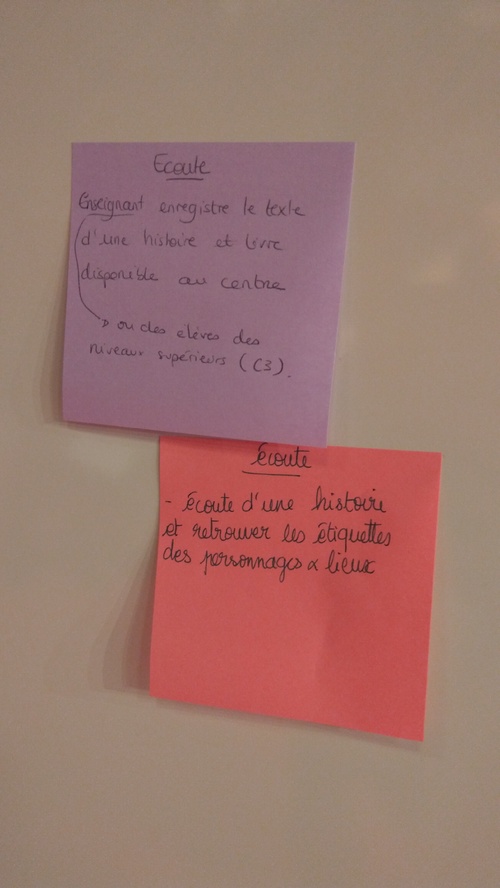 Ecoute
Enseignant enregistre le texte
d'une histoire et livre
disponible au centre
ou des elèves des
niveaux supérieurs (C3).
écoute
- écoute d'une histoire
et retrouver les étiquettes
des personnages & lieux